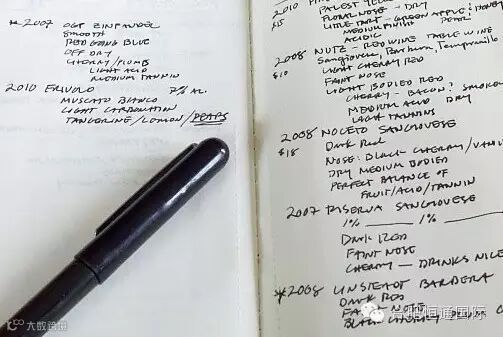 ** 2007 OGP ZINFANDEL
SMOOTH
RED GOING BLUE
OFF DRY
CHERRY/PLUMB
LIGHT ACID
MEDIUM TANNIN
2010 FRIVOLO 7% AL.
MUSCATO BIANCO
LIGHT CARBONATION
TANGERINE/LOMON/PEARS
2010
PALEST YELLOW
$15 FLORAL NOSE - DRY
LITTLE TART - GREEN APPLE & HONEY
MEDIUM FINISH PEAR
ACIDIC
2008 NUTZ - RED WINE TABLE WINE
Sangiovese, Barbera, Tempranillo
$10 LIGHT CHERRY RED
FAINT NOSE
LIGHT BODIED RED
CHERRY - BACON? SMOKEY
MEDIUM ACID DRY
LIGHT TANNINS
2008 NOCETO SANGIOVESE
$18 DARK RED
NOSE: BLACK CHERRY/VANI
DRY MEDIUM BODIED
PERFECT BALANCE OF
FRUIT/ACID/TANNIN
2007 RISERVA SANGIOVESE
1% 1%
DARK RED
FAINT NOSE
CHERRY - DRINKS NICE
*2008 LINSTEADT BARBERA
DARK RED
FAINT NOTE
BLACK CHERRY
大数跨境
合肥恒通国际